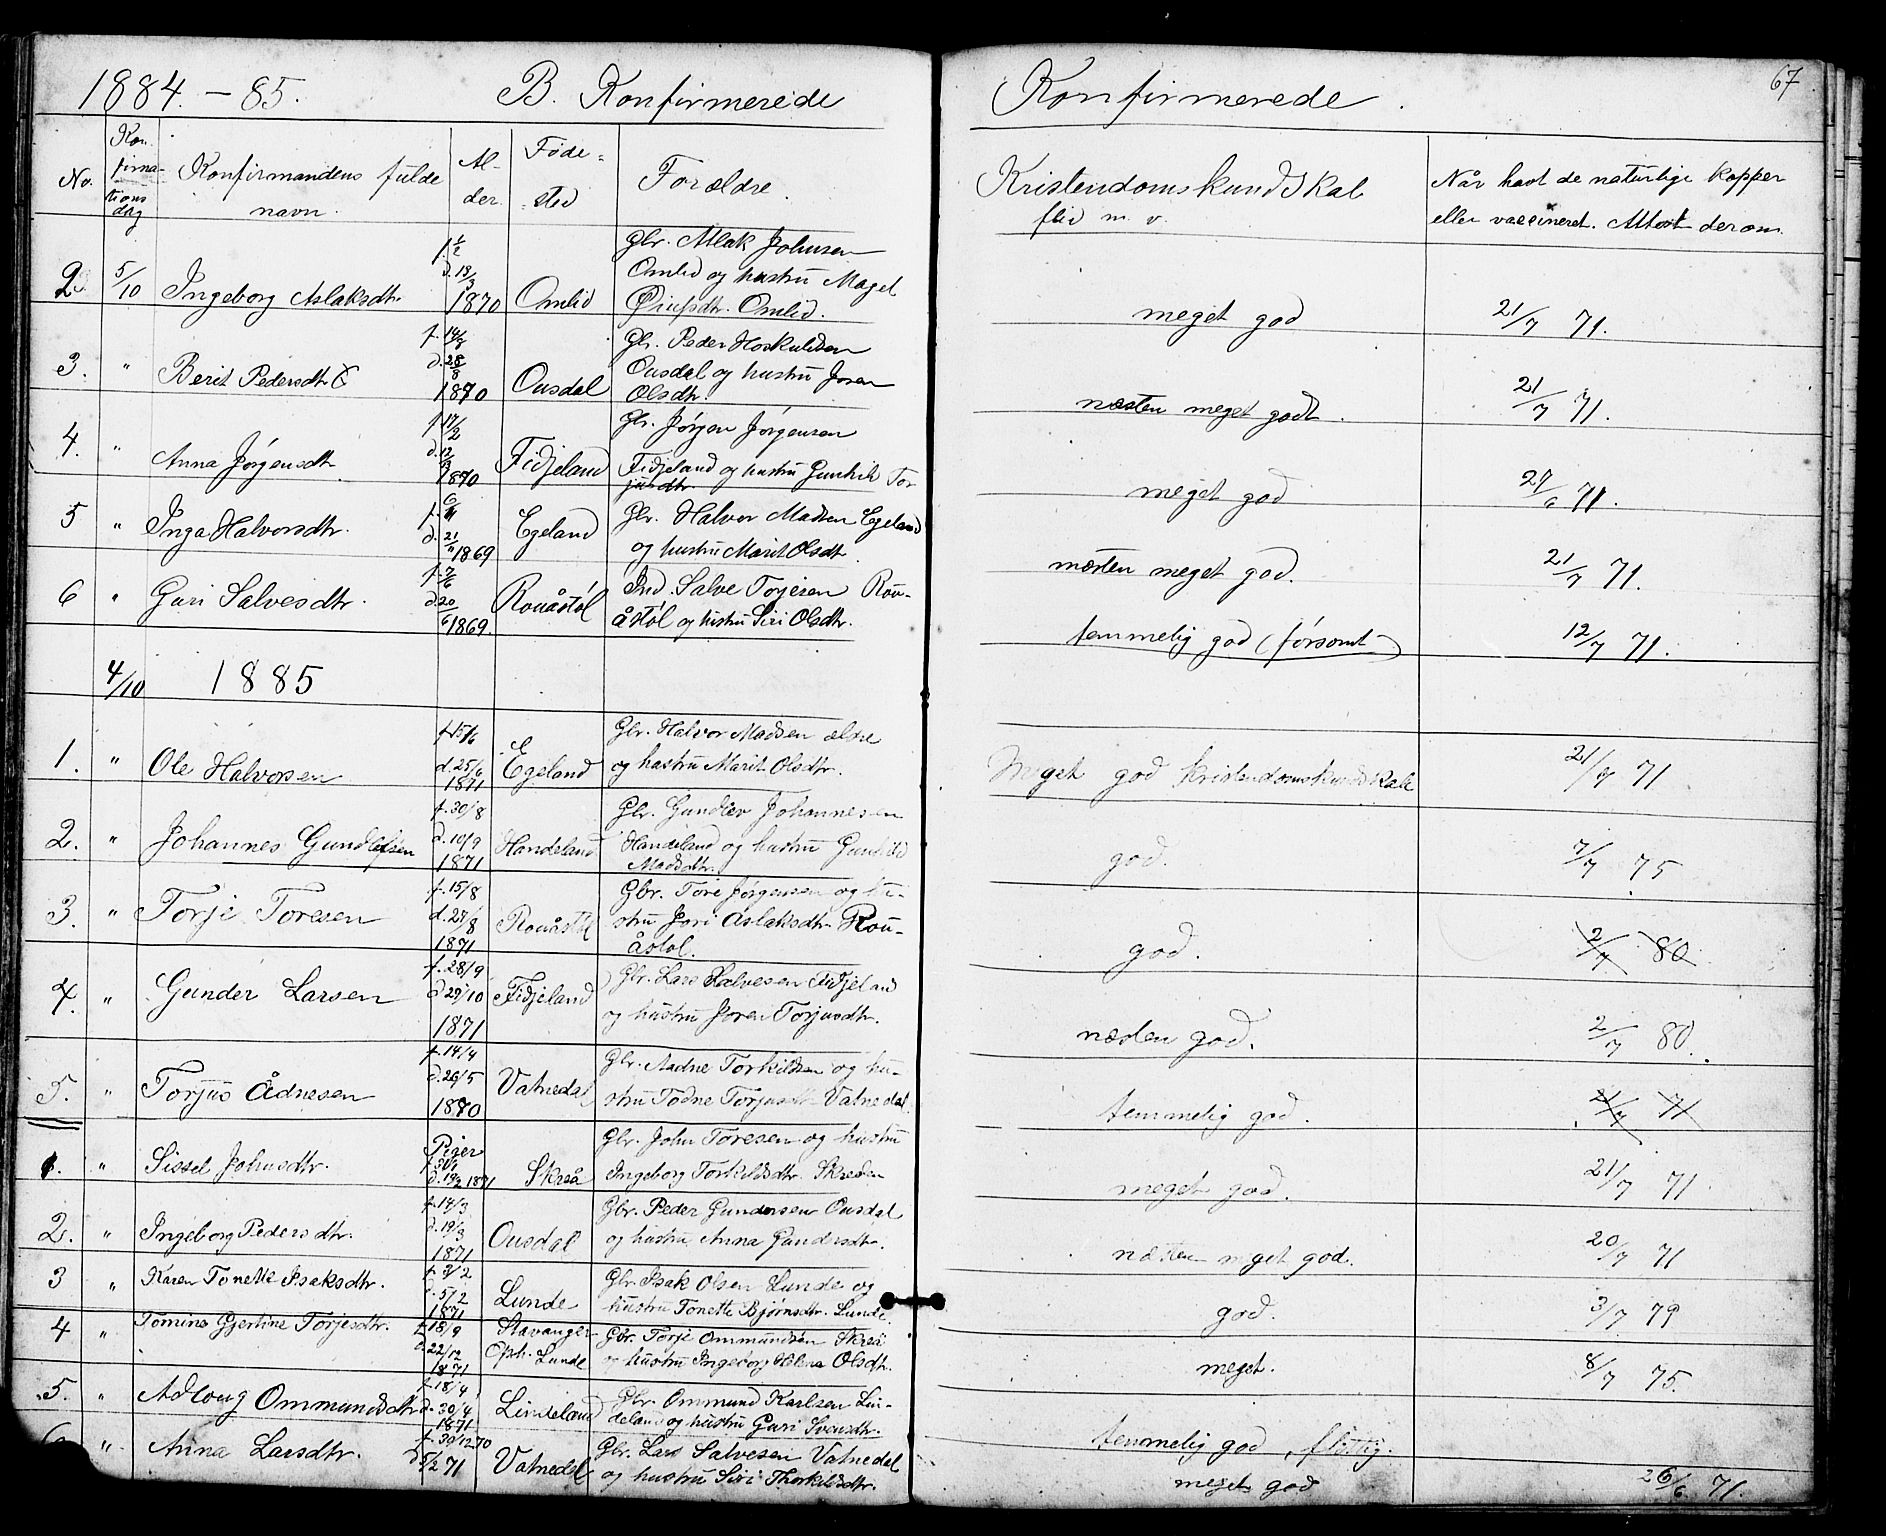 1884. - 85. B. Konfirmerede
Konfirmerede. 67
No. Konfirmationsdag Konfirmandens fulde navn. Alder. Fødested Forældre. Kristendomskundskab flid m. v. Når havt de naturlige kopper eller vaccineret. Attest derom
2. 5/10 Ingeborg Aslaksdtr. f. d. 13/3 1870 Omlid Gbr. Aslak Johnsen
Omlid og hustru Maget
Omlid. meget god 21/7 71.
3. " Berit Pedersdtr f. 14/8 d. 28/8 1870 Ousdal Gbr. Peder Hoskuldsen
Ousdal og hustru Joren
Olsdtr. næsten meget godt. 21/7 71.
4. " Anna Jørgensdtr f. 17/2 d. 1870 Fidjeland Gbr. Jørgen Jørgensen
Fidjeland og hustru Gunhild Tor
jusdtr. meget god 71.
5 " Inga Halvorsdtr. f. d. 21/11 1869 Egeland Gbr. Halvor Madsen Egeland
og hustru Marit Olsdtr. næsten meget god. 21/7 71.
6 " Guri Salvesdtr. f. 7/6 d. 20/6 1869. Rouåstøl Ind. Salve Torjesen Rou-
åstøl og hustru Siri Olsdtr. temmelig god (forsømt) 12/7 71.
4/10 1885
1. " Ole Halvorsen f. 15/6 d. 25/6 1871 Egeland Gbr. Halvor Madsen ældre
og hustru Marit Olsdtr. Meget god Kristendomskundskab 21/7 71
2. " Johannes Gundlefsen f. 30/8 d. 10/9 1871 Handeland Gbr. Gundlev Johannesen
Handeland og hustru Gunhild
Madsdtr. god. 7/7 75
3. " Torje Toresen f. 15/8 d. 27/8 1871 Rouåstøl Gbr. Tore Jørgensen og hu-
stru Jori Aslaksdtr. Rou-
åstøl. god. 2/7 80
4. " Gunder Larsen f. 28/9 d. 29/10 1871 Fidjeland Gbr. Lars Salvesen Fidjeland
og hustru Joren Torjusdtr. næsten god. 2/7 80.
5. " Torjus Ådnesen f. 14/4 d. 26/5 1870 Vatnedal Gbr. Aadne Torkildsen og hu-
stru Todne Torjusdtr Vatnedal. temmelig god. 21/7 71
Piger
1. " Sissel Johnsdtr. f. 31/1 d. 19/2 1871 Skreå Gbr. John Toresen og hustru
Ingeborg Torkildsdtr. Skreden meget god. 21/7 71
2. " Ingeborg Pedersdtr. f. 14/3 d. 19/3 1871 Ousdal Gbr. Peder Gundersen Ousdal
og hustru Anna Gundersdtr. næsten meget god. 20/7 71
3 " Karen Tonette Isaksdtr. f. 3/2 d. 5/2 1871 Lunde Gbr. Isak Olsen Lunde og
hustru Tonette Bjørnsdtr. Lunde. god. 3/7 79
4 " Tomine Gjertine Torjesdtr. f. 18/9 d. 22/12 1871 Stavanger Oph. Lunde Gbr. Torje Ommundsen Skreå
og hustru Ingeborg Helene Olsdtr. meget. 8/7 75.
5. " Adloug Ommundsdtr f. 18/4 d. 30/4 1871 Lindeland Gbr. Ommund Karlsen Lin-
deland og hustru Guri Svensdtr. temmelig god, flittig.
" Anna Larsdtr. f. 30/12 70 d 5/2 71 Vatnedal Gbr. Lars Salvesen Vatnedal
og hustru Siri Thorkildsdtr. meget god 26/6 71.